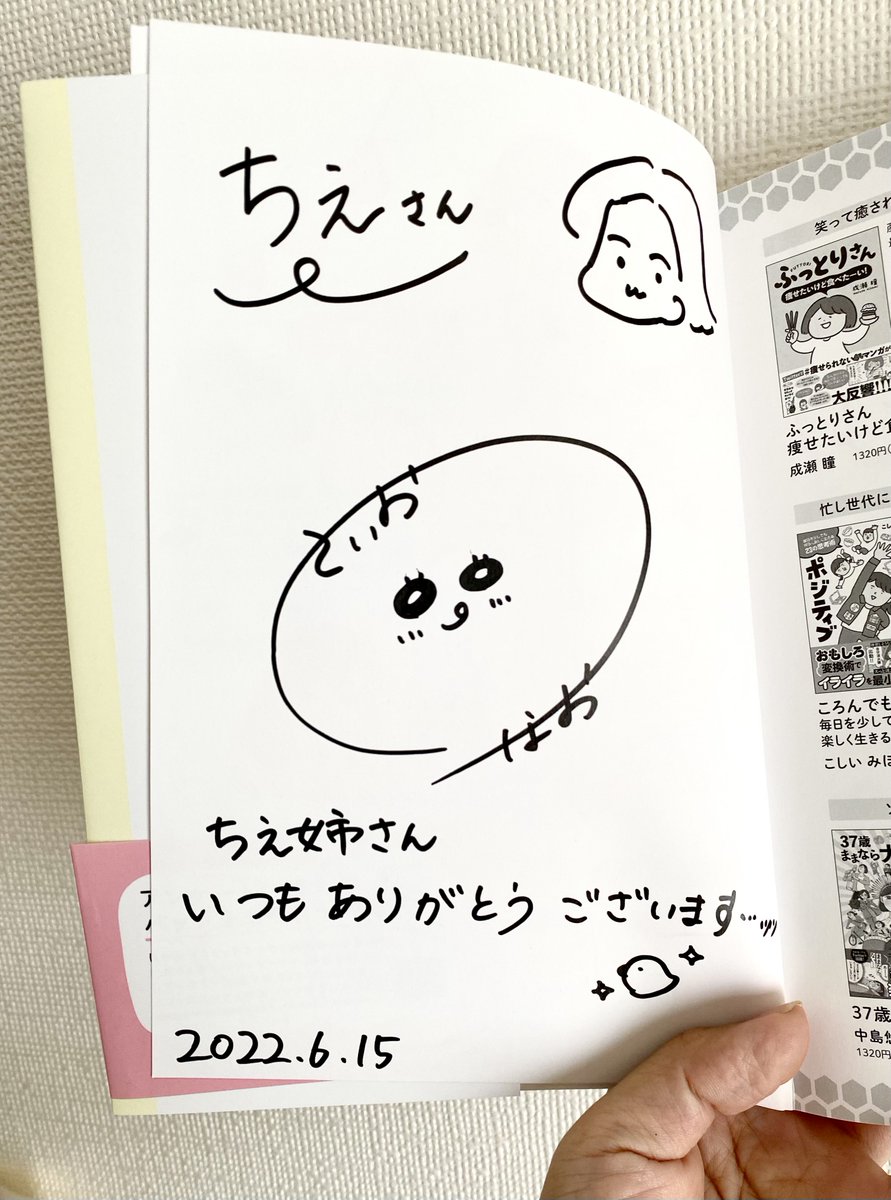 ちえさん
といお
はお
ちえ姉さん
いつも ありがとう ございます…ッッ
2022.6.15
笑って癒され
ふっとりさん
痩せたいけど食べたーい!
成瀬 瞳
#痩せられない
マンガが
大反響!!!
ふっとりさん
痩せたいけど食
成瀬 瞳 1320円(
忙し世代に
23の思考術
ポジティブ
おもしろ
変換術で
イライラを最小
ころんでも
毎日を少して
楽しく生きる
こしい みほ
37歳
ままならナ
37歳
中島悠
1320円